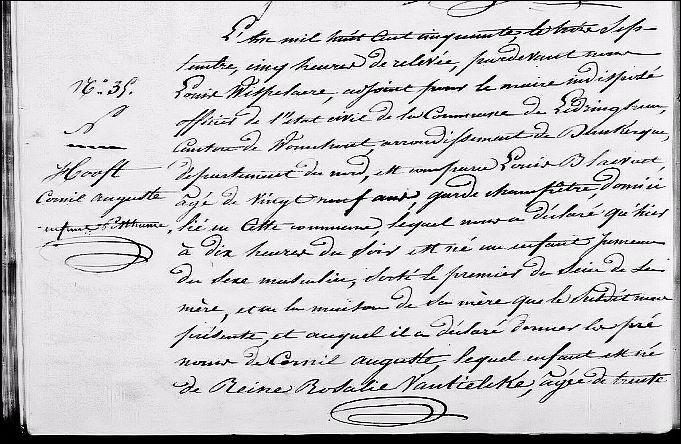 L'An mil huit cent cinquante, le trois Sep-
tembre, cinq heures de relevée, pardevant nous
Louis Wispelaere, adjoint pour le maire indisposé
officier de l'état civil de la Commune de Ledringhem,
Canton de Wormhout, arrondissement de Dunkerque,
département du nord, est comparu Louis Blaevoet,
âgé de vingt neuf ans, garde champêtre, domici
lié en cette commune, lequel nous a déclaré qu'hier
à dix heures du soir est né un enfant jumeau
du sexe masculin, sorti le premier du sein de sa
mère, et en la maison de sa mère que le Susdit nous
présente, et auquel il a déclaré donner les pré
noms de Cornil auguste, lequel enfant est né
de Reine Rosalie Vantielcke, âgée de trente
N.° 35.
N
Hooft
Cornil auguste
enfant Posthume